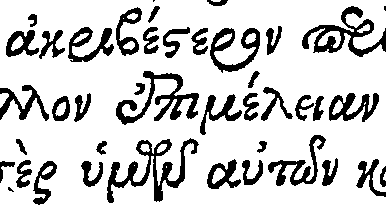 ἀκριβέστερον
λλον ἐπιμέλειαν
ὑμῶν αὐτῶν